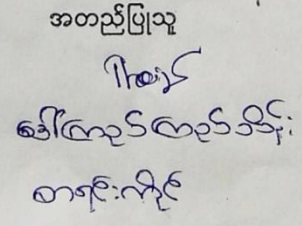 အတည်ပြုသူ
ဒေါ်ကြည်ကြည်သိန်း
စာရင်းကိုင်